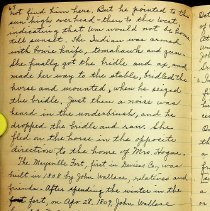 not find him here. But he pointed to the
sun high overhead - then to the west,
indicating that Tom would not be home
till sunset. The Indian was armed
with bowie knife, tomahawk and gun.
She finally got the bridle and ax, and
made her way to the stable, bridled the
horse and mounted, when he seized
the bridle. Just then a noise was
heard in the underbrush, and he
dropped the bridle and ran. She
fled on the horse in the opposite
direction to the home of Mrs. Hogan.
The Maysville Fort, first in Daviess Co., was
built in 1808 by John Wallace, relatives and
friends. After spending the winter in the
fort, on Apr. 28, 1809, John Wallace